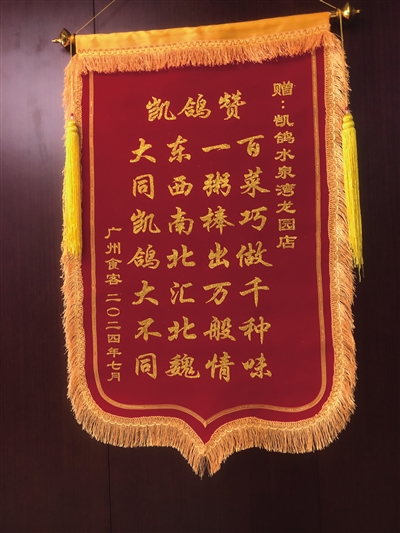 赠：凯鸽水泉湾龙园店
凯鸽赞
百菜巧做千种味
一粥棒出万般情
东西南北汇北魏
大同凯鸽大不同
广州食客 二〇二四年七月